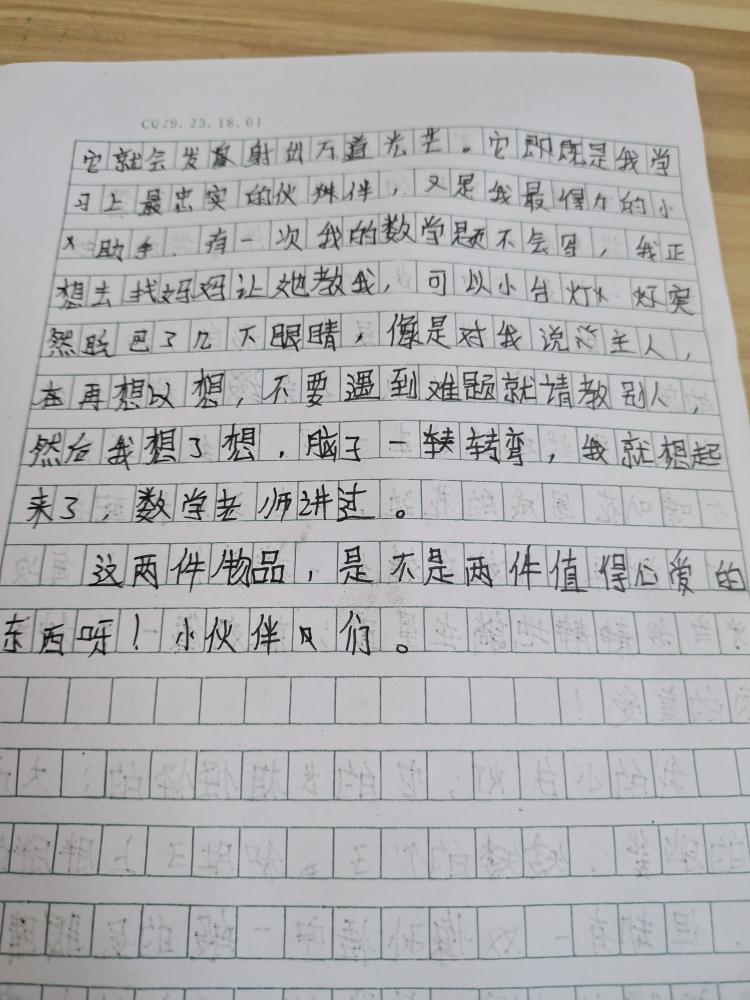 CQ29.23.18.01
它就会发射出万道光芒。它即既是我学
习上最忠实的伙伴，又是我最得力的小
助手．有一次我的数学题不会写，我正
想去找妈妈让她教我，可以小台灯 灯突
然眨巴了几下眼睛，像是对我说：主人，
在再想以想，不要遇到难题就请教别人，
然后我想了想．脑子一转弯，我就想起
来了，数学老师讲过。
这两件物品，是不是两件值得心爱的
东西呀！小伙伴们。